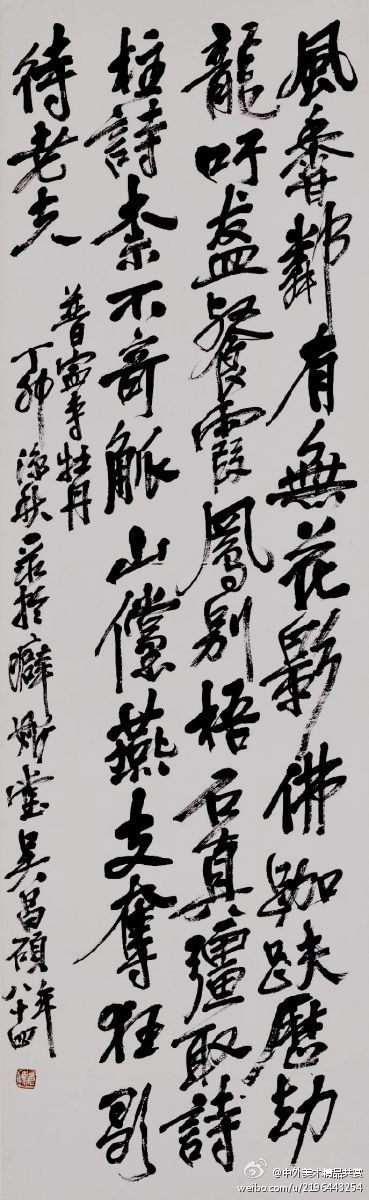 風香鄰有無花影佛跏趺歷劫
龍吁盋餐霞鳳別梧石真疆取詩
柱詩柰不奇觚山儻燕支奪狂歌
待老夫
普寧寺牡丹
丁卯深秋录於癖斯堂吳昌碩年八十四
@中外美术精品共赏
weibo.com/u/2196443254